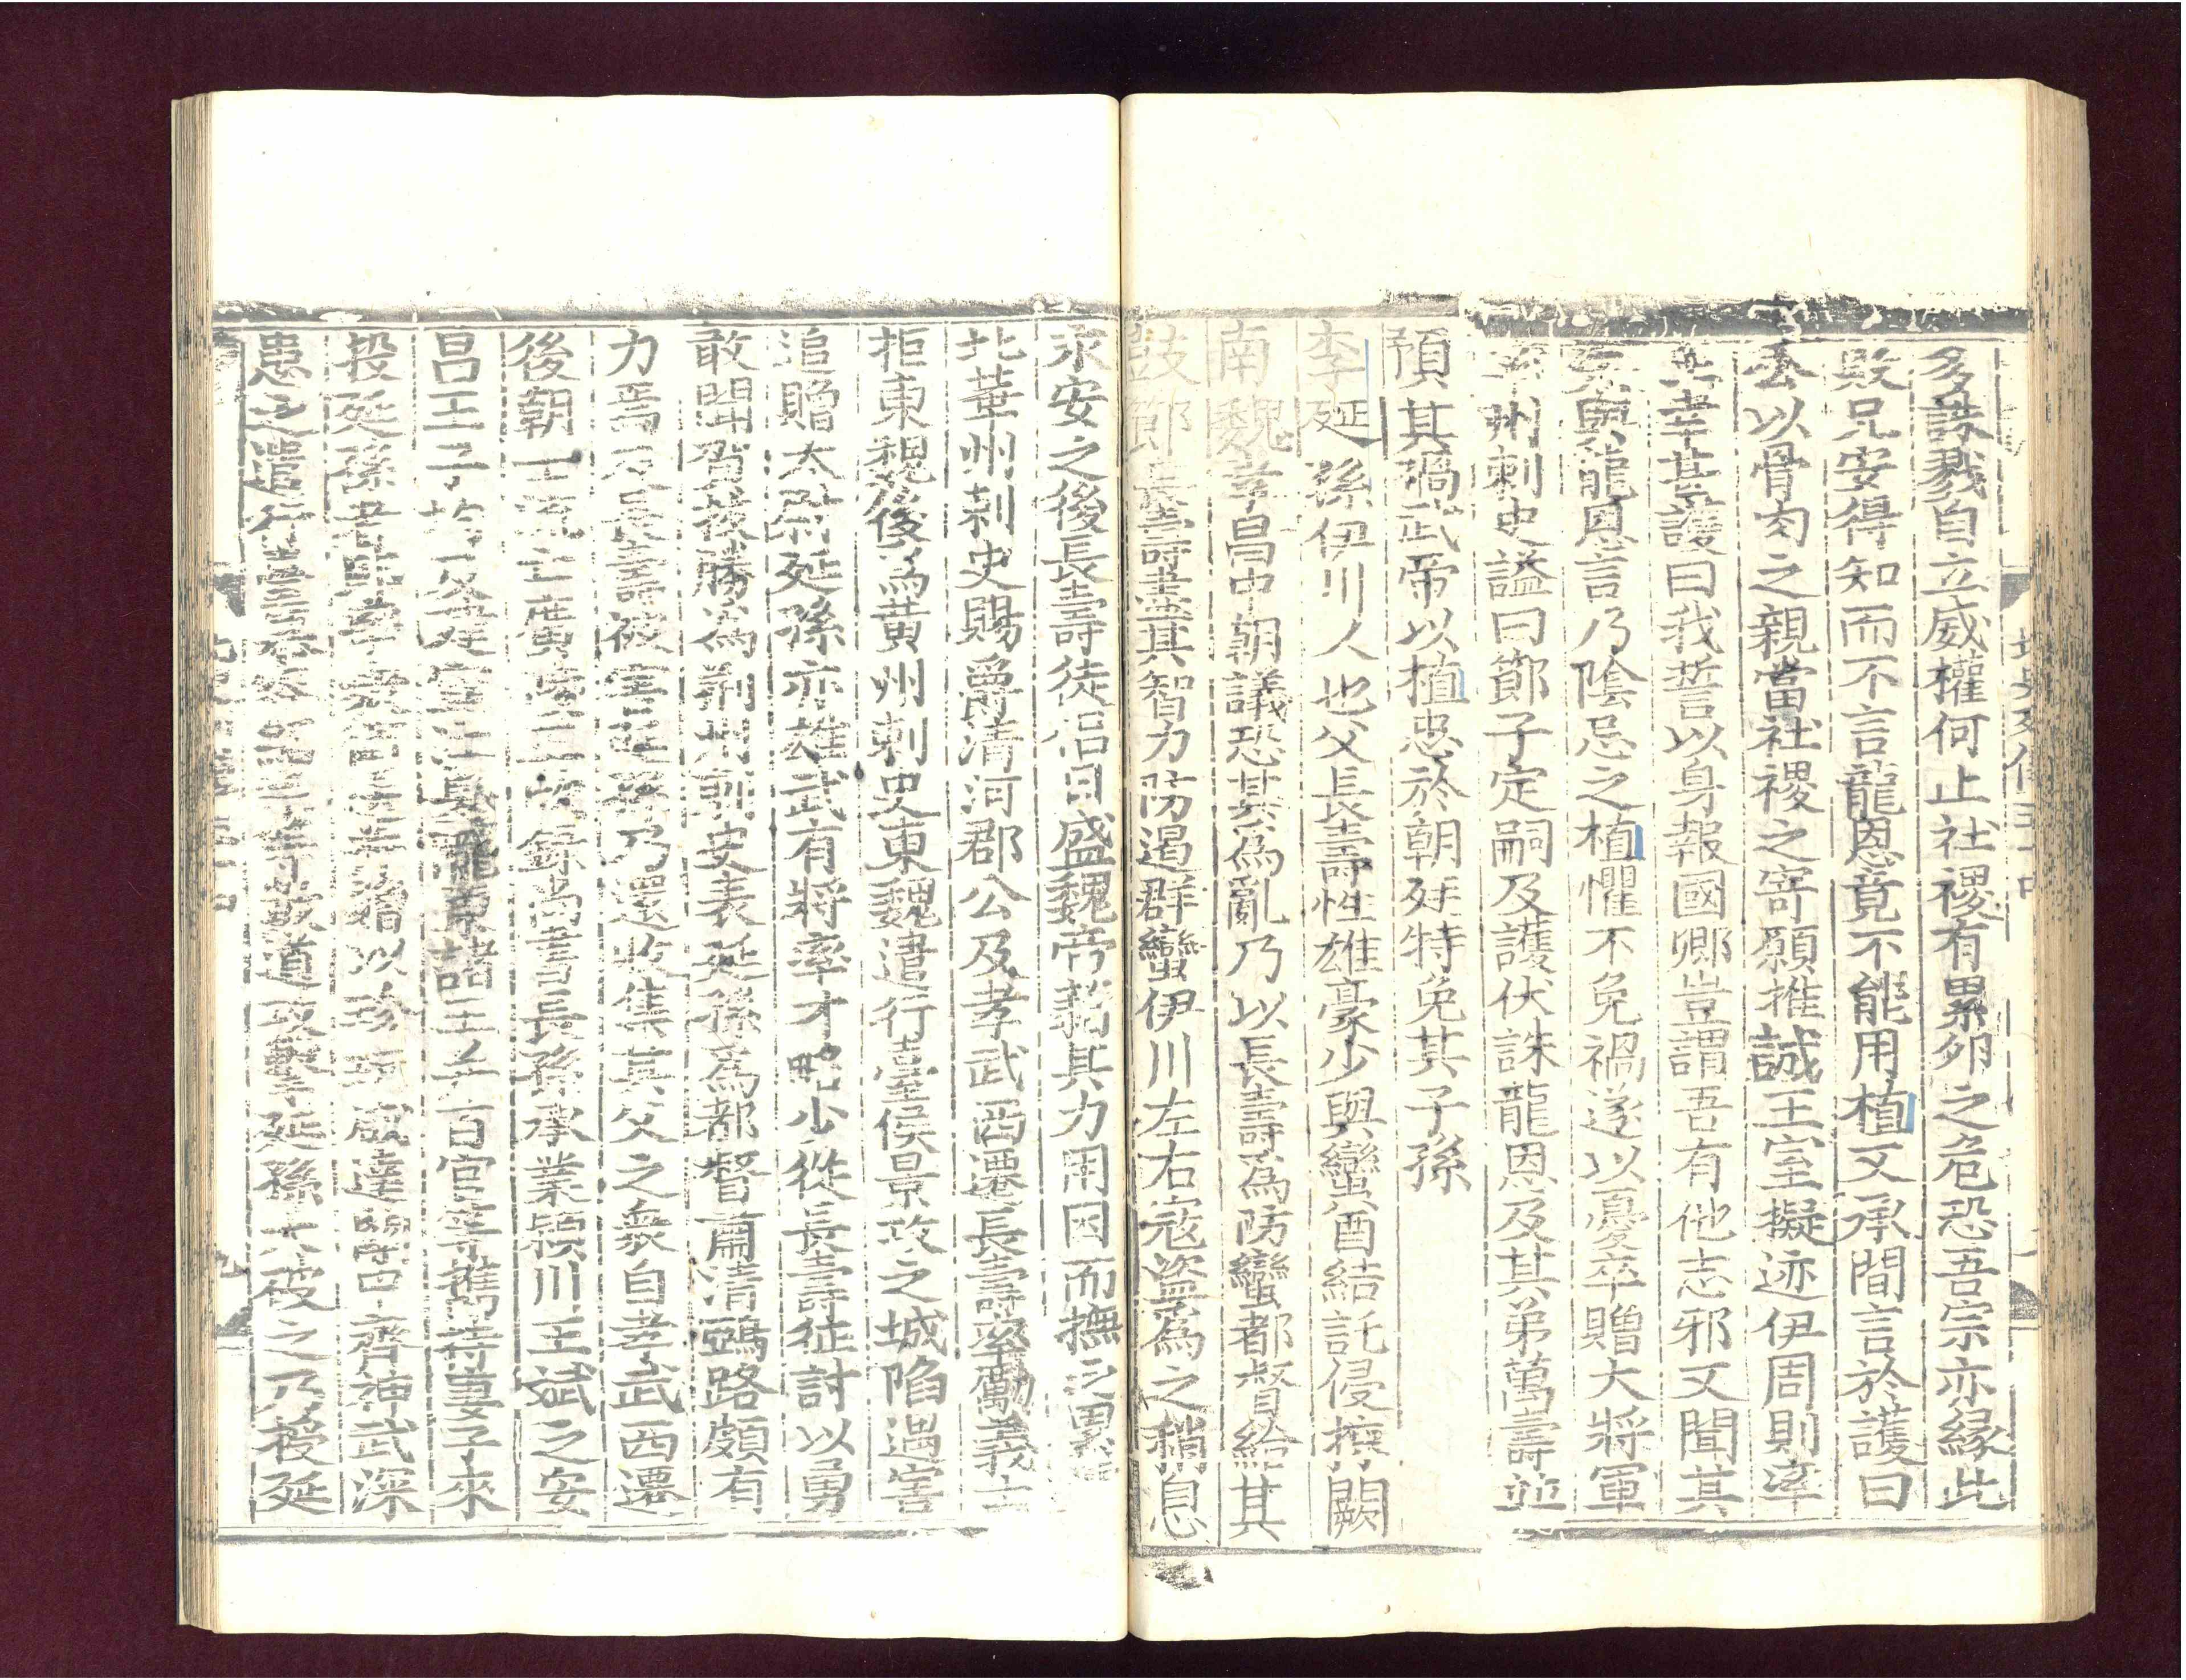 多誅戮自立威權何止社稷有累卵之危恐吾宗亦緣此
敗兄安得知而不言龍恩竟不能用植又承間言於護曰
公以骨肉之親當社稷之寄願推誠王室擬迹伊周則率
土幸甚護曰我誓以身報國卿豈謂吾有他志邪又聞其
與龍恩言乃陰忌之植懼不免禍遂以憂卒贈大將軍
州刺史謚曰節子定嗣及護伏誅龍恩及其弟萬壽並
預其禍武帝以植忠於朝廷特免其子孫
李延孫伊川人也父長壽性雄豪少與蠻酋結託侵掠闕
南魏孝昌中朝議恐其為亂乃以長壽為防蠻都督給其
鼓節長壽盡其智力防遏群蠻伊川左右寇盜為之稍息
永安之後長壽徒侶日盛魏帝藉其力用因而撫之累
北華州刺史賜爵清河郡公及孝武西遷長壽率勵義士
拒東魏後為黃州刺史東魏遣行臺侯景攻之城陷遇害
追贈太尉延孫亦雄武有將率才略少從長壽征討以勇
敢聞賀拔勝為荊州刺史表延孫為都督肅清鵶路頗有
力焉及長壽被害延孫乃還收集其父之衆自孝武西遷
後朝士流亡廣陵王欣錄尚書長孫承業潁川王斌之安
昌王子均及建寧江夏隴東諸王并百官等攜持妻子來
投延孫者延孫衛送并贈以珍玩咸達關中齊神武深
患之遣行臺慕容紹宗等數道攻擊延孫大破之乃授延